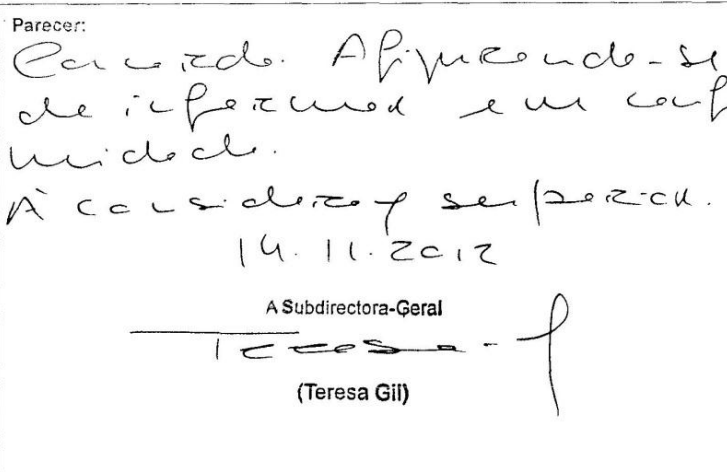 Parecer:
Concordo. Afigurando-se
de informar em conf
midade.
À consideração superior.
14.11.2012
A Subdirectora-Geral
Teresa Gil
(Teresa Gil)